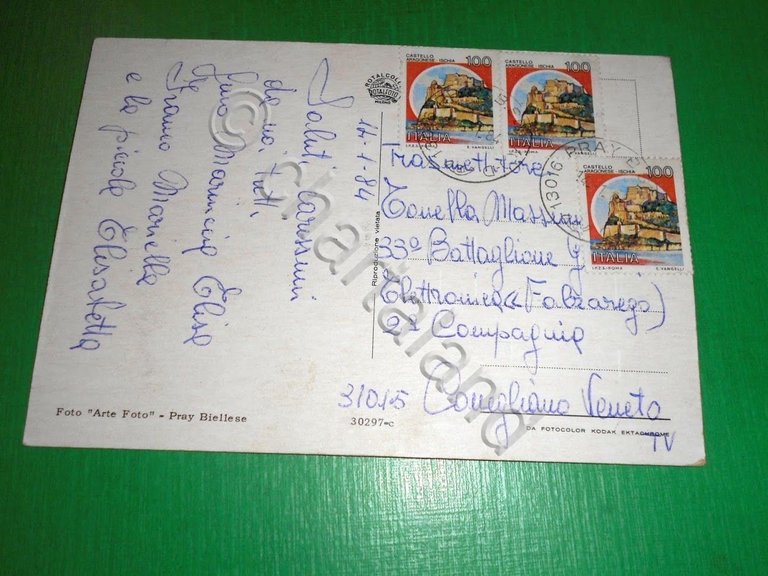 Saluti carissimi
da noi tutti
Franco Mariella
e la piccola Elisabetta
14-1-84
ROTALCOLOR
ROTALFOTO
MILANO
Riproduzione Vietata
CASTELLO
ARAGONESE - ISCHIA
100
ITALIA
I.P.Z.S. - ROMA
E. VANGELLI
CASTELLO
ARAGONESE - ISCHIA
100
ITALIA
I.P.Z.S. - ROMA
E. VANGELLI
CASTELLO
ARAGONESE - ISCHIA
100
ITALIA
I.P.Z.S. - ROMA
E. VANGELLI
13016 PRAY
Trasmettitore
Tonella
33° Battaglione
Elettronica « Falzarego )
2ª Compagnia
31015 Conegliano Veneto
TV
Foto "Arte Foto" - Pray Biellese
30297-c
DA FOTOCOLOR KODAK EKTACHROME
© chartaland